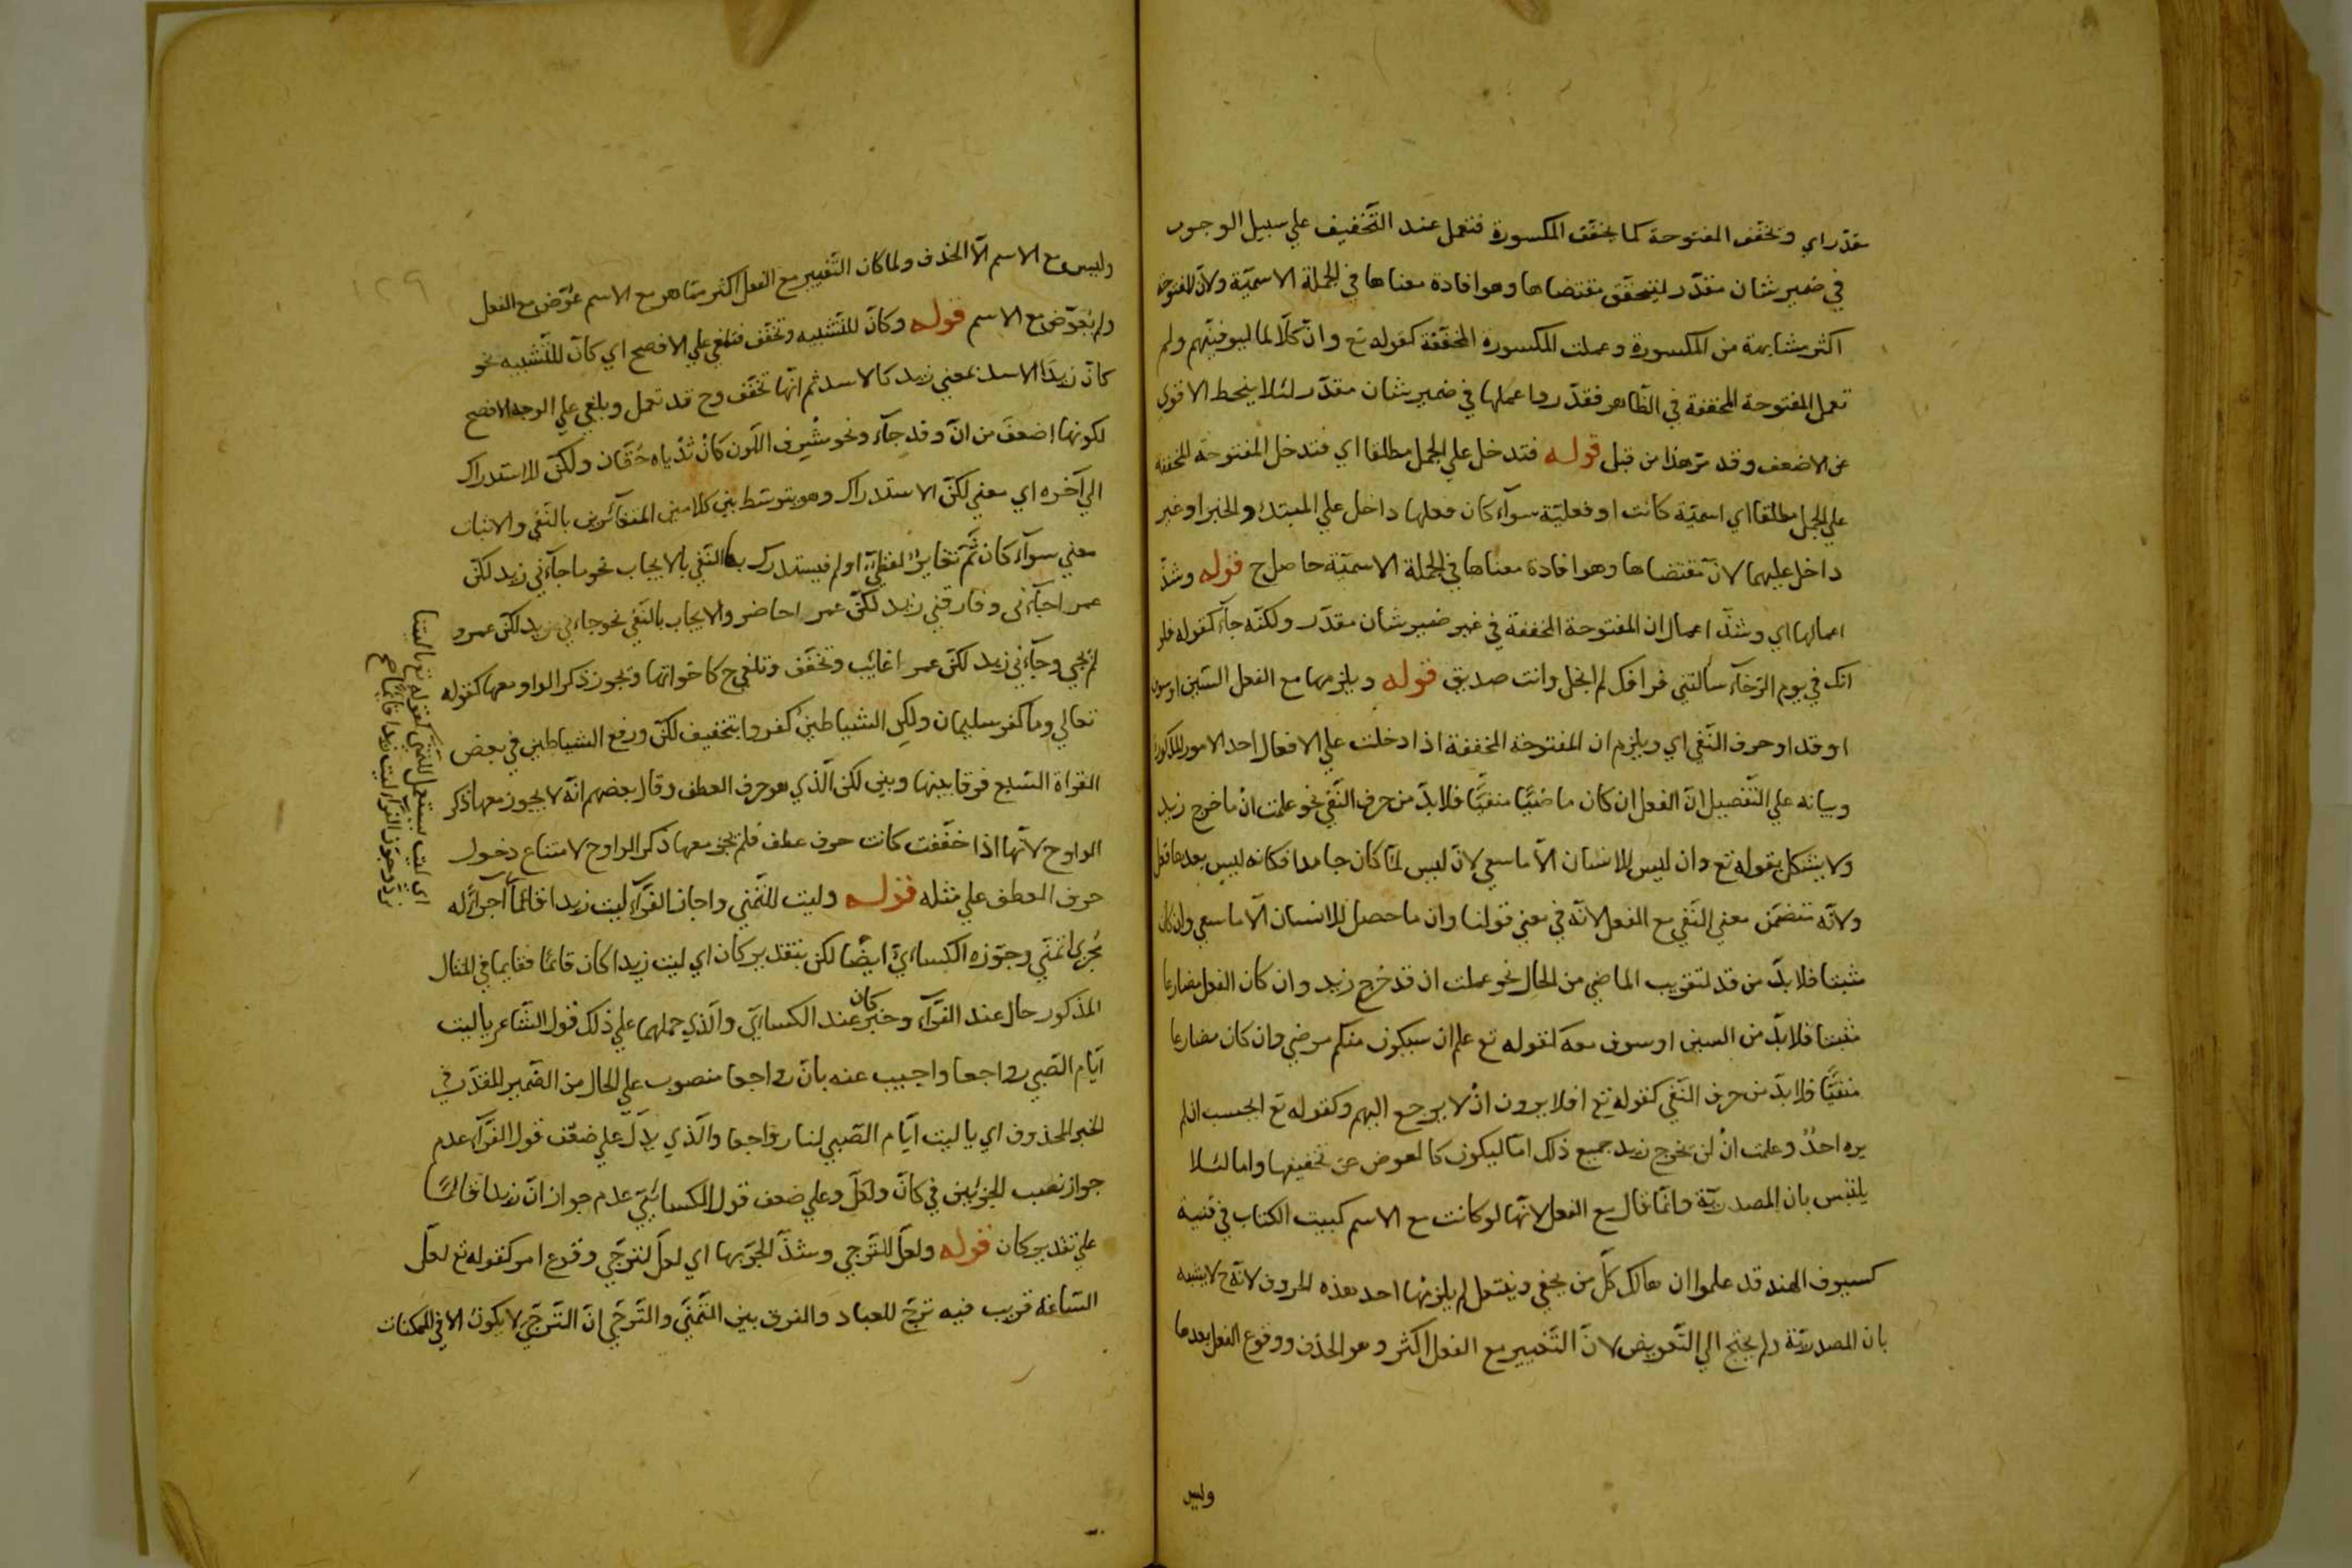 مقدّر اي وتخفّف المفتوحة كما يخفّف المكسورة فتعمل عند التّخفيف علي سبيل الوجوب
في ضمير شان مقدّر ليتحقّق مقتضاها وهو افادة معناها في الجملة الاسميّة ولانّ المفتوحة
اكثر مشابهة من المكسورة وعملت المكسورة المخفّفة كقوله تع وانّ كلّا لما ليوفينّهم ولم
تعمل المفتوحة المخففة في الظّاهر فقدّروا عملها في ضمير شان مقدّر لئلا ينحط الاقوي
عن الاضعف وقد مرّ هذا من قبل قوله فتدخل علي الجمل مطلقا اي فتدخل المفتوحة المخففة
علي الجمل مطلقا اي اسميّة كانت او فعليّة سوآء كان فعلها داخل علي المبتدا والخبر او غير
داخل عليهما لانّ مقتضاها وهو افادة معناها في الجملة الاسميّة حاصل ح قوله وشذّ
اعمالها اي وشذّ اعمال ان المفتوحة المخففة في غير ضمير شأن مقدّر ولكنّه جآء كقوله فلو
انك في يوم الرّخآء سألتني فراقك لم ابخل وانت صديق قوله ويلزمها مع الفعل السّين او سوف
او قد او حرف النّفي اي ويلزم ان المفتوحة المخففة اذا دخلت علي الافعال احد الامور المذكورة
وبيانه علي التّفصيل انّ الفعل ان كان ماضيًّا منفيًّا فلا بدّ من حرف النّفي نحو علمت انْ ما خرج زيد
ولا يشكل بقوله تع وان ليس للانسان الّا ما سعي لانّ ليس لمّا كان جامدا فكانه ليس بعدها فعل
ولانّه تتضمّن معني النّفي مع الفعل لانّه في معني قولنا وان ما حصل للانسان الّا ما سعي وان كان
مثبتا فلا بدّ من قد لتقريب الماضي من الحال نحو علمت ان قد خرج زيد وان كان الفعل مضارعا
مثبتا فلا بدّ من السين او سوف معه كقوله تع علم ان سيكون منكم مرضي وان كان مضارعا
منفيًّا فلا بدّ من حرف النّفي كقوله تع افلا يرون انْ لا يرجع اليهم وكقوله تع ايحسب ان لم
يره احدٌ وعلمت انْ لن يخرج زيد جميع ذلك امّا ليكون كالعوض عن تخفيفها واما لئلا
يلتبس بان المصدريّة وانّما قال مع الفعل لانّها لو كانت مع الاسم كبيت الكتاب في فتية
كسيوف الهند قد علموا ان هالك كلّ من يحفي وينتعل لم يلزمها احد هذه الحروف لانّه ح لا يشبه
بان المصدريّة ولم يحتج الي التّعويض لانّ التّغيير مع الفعل اكثر وهو الحذف ووقوع الفعل بعدها
وليس
١٢٩
وليس مع الاسم الّا الحذف ولما كان التّغيير مع الفعل اكثر ممّا هو مع الاسم عُوّض مع الفعل
ولم يُعوّض مع الاسم قوله وكانّ للتّشبيه وتخفّف فتلغي علي الافصح اي كانّ للتّشبيه نحو
كانّ زيدًا الاسد بمعني زيد كالاسد ثم انّها تخفّف وح قد تعمل ويلغي علي الوجه الافصح
لكونها اضعف من انّ وقد جآء ونحو مشرف اللّون كانْ ثدياه حُقّان ولكنّ للاستدراك
الي آخره اي معني لكنّ الاستدراك وهو يتوسّط بين كلامين المتغائرين بالنّفي والاثبات
معني سوآء كان ثَمّ تغاير لفظيّ او لم فيستدرك بها النّفي بالايجاب نحو ما جآءني زيد لكنّ
عمرا جآءني وفارقني زيد لكنّ عمرا حاضر والايجاب بالنّفي نحو جاءني زيد لكنّ عمرو
لم يجي وجآءني زيد لكنّ عمرا غائب وتخفّف وتلغي ح كاخواتها ويجوز ذكر الواو معها كقوله
تعالي وما كفر سليمان ولكن الشياطينُ كفروا بتخفيف لكنّ ورفع الشياطين في بعض
القراة السّبع فرقا بينها وبين لكن الّذي هو حرف العطف وقال بعضهم انّه لا يجوز معها ذكر
الواو ح لانّها اذا خفّفت كانت حرف عطف فلم يجز معها ذكر الواو ح لامتناع دخول
حرف العطف علي مثله قوله وليت للتّمني واجاز الفرّآء ليت زيدا قائما اجرآءً له
مُجري اتمنّي وجوّزه الكسائيّ ايضًا لكن بتقدير كان اي ليت زيدا كان قائمًا فقايما في المثال
المذكور حال عند الفرّآء وخبر كان عند الكسائيّ والّذي حملهما علي ذلك قول الشّاعر يا ليت
ايّام الصّبي رواجعا واجيب عنه بانّ رواجعا منصوب علي الحال من الضّمير المقدّر في
الخبر المحذوف اي يا ليت ايّام الصّبي لنا رواجعا والّذي يدلّ علي ضعف قول الفرّآء عدم
جواز نصب الجزئين في كانّ ولعلّ وعلي ضعف قول الكسائيّ عدم جواز انّ زيدا قائمًا
علي تقدير كان قوله ولعلّ للتّرجي وشذّ الجرّ بها اي لعلّ لترجّي وقوع امر كقوله تع لعلّ
السّاعة قريب فيه ترجّ للعباد والفرق بين التّمنّي والتّرجّي انّ التّرجّي لا يكون الا في الممكنات
اي ليت يستعمل للتّمنّي كقوله تع يا ليتنا
نردّ وجوّز الفرّاء ليت زيدا قائمًا صح